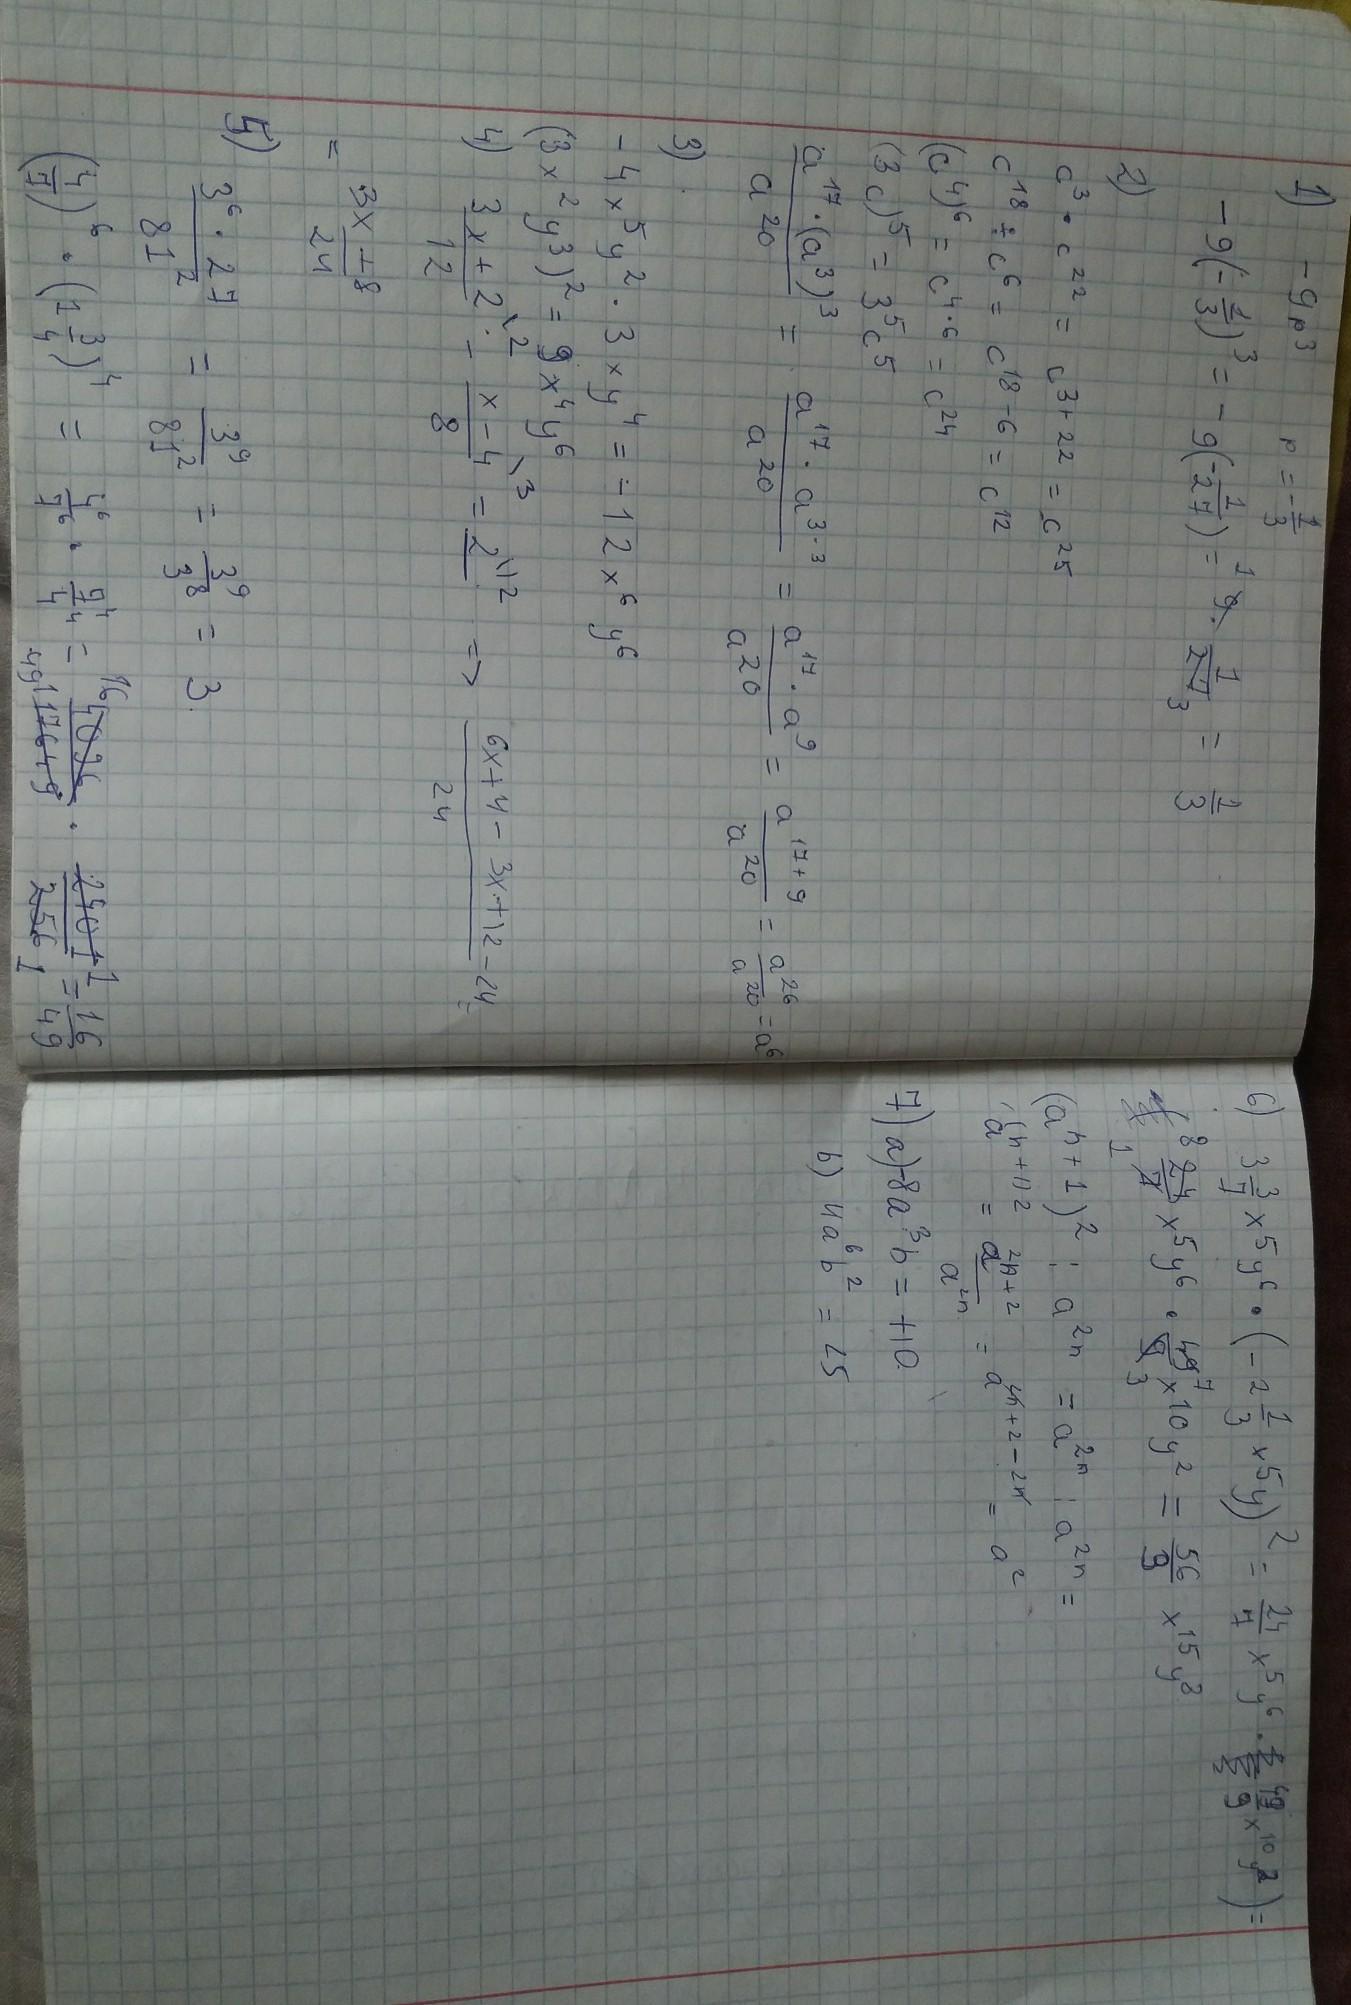 1) -9p³ p = -1/3
-9(-1/3)³ = -9(-1/27) = ¹9 · 1/27₃ = 1/3
2)
c³ · c²² = c³⁺²² = c²⁵
c¹⁸ ÷ c⁶ = c¹⁸⁻⁶ = c¹²
(c⁴)⁶ = c⁴·⁶ = c²⁴
(3c)⁵ = 3⁵c⁵
a¹⁷·(a³)³/a²⁰ = a¹⁷·a³·³/a²⁰ = a¹⁷·a⁹/a²⁰ = a¹⁷⁺⁹/a²⁰ = a²⁶/a²⁰ = a⁶
3)
-4x⁵y² · 3xy⁴ = -12x⁶y⁶
(3x²y³)² = 9x⁴y⁶
4) 3x+2/12 \2 - x-4/8 \3 = 2 \12 => 6x+4-3x+12-24/24 =
= 3x-8/24
5) 3⁶·27/81² = 3⁹/81² = 3⁹/3⁸ = 3
(4/7)⁶ · (1 3/4)⁴ = 4⁶/7⁶ · 7⁴/4⁴ = ¹⁶4096/₄₉117649 · 2401¹/256₁ = 16/49
6) 3 3/7 x⁵y⁶ · (-2 1/3 x⁵y)² = 24/7 x⁵y⁶ · 49/9 x¹⁰y²) =
⁸24/7₁ x⁵y⁶ · 49⁷/9₃ x¹⁰y² = 56/3 x¹⁵y⁸
(aⁿ+1)² : a²ⁿ = a²ⁿ : a²ⁿ =
a⁽ⁿ⁺¹⁾² = a²ⁿ⁺²/a²ⁿ = a²ⁿ⁺²⁻²ⁿ = a²
7) a) -8a³b = +10
b) 4a⁶b² = 25